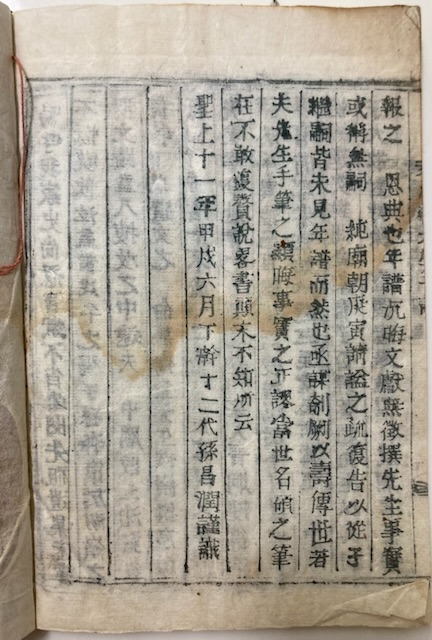 報之　恩典也年譜沉晦文獻無徵撰先生事實
或稱無嗣　純廟朝庚寅請諡之疏復告以從子
繼嗣皆未見年譜而然也亟謀剞劂以壽傳世若
夫先生手筆之顯晦事實之正誤當世名碩之筆
在不敢復贅說畧書顚末不知所云
聖上十一年甲戌六月下澣十二代孫昌潤謹識